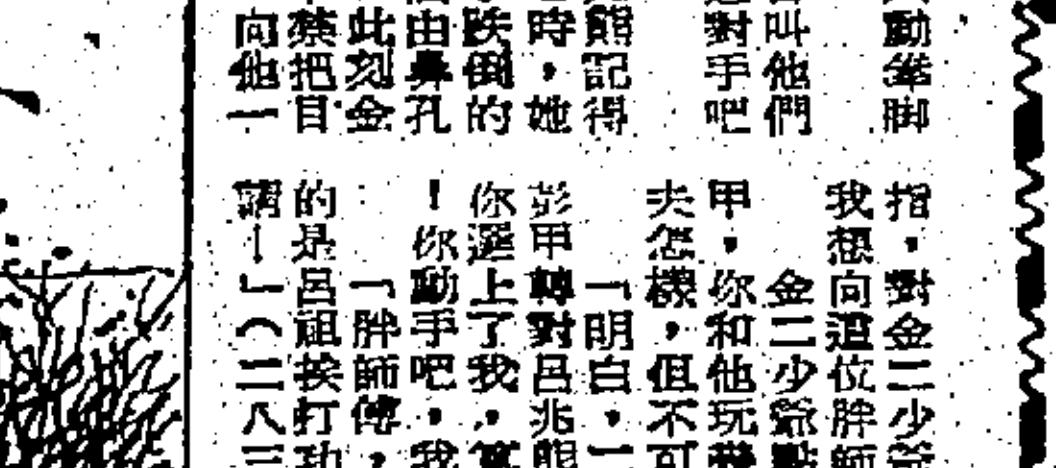 動拳脚
叫他們
對手吧
熊記得
時，她
跌倒的
由鼻孔
此刻金
禁把目
向他一
指，對金二少爺
我想向這位胖師
金二少爺點
甲，你和他玩幾
夫怎樣，但不可
「明白，一
彭甲轉對呂兆熊
你選上了我，算
！你動手吧，我
「胖師傅，
的是呂祖挨打功
謂—」（二八三